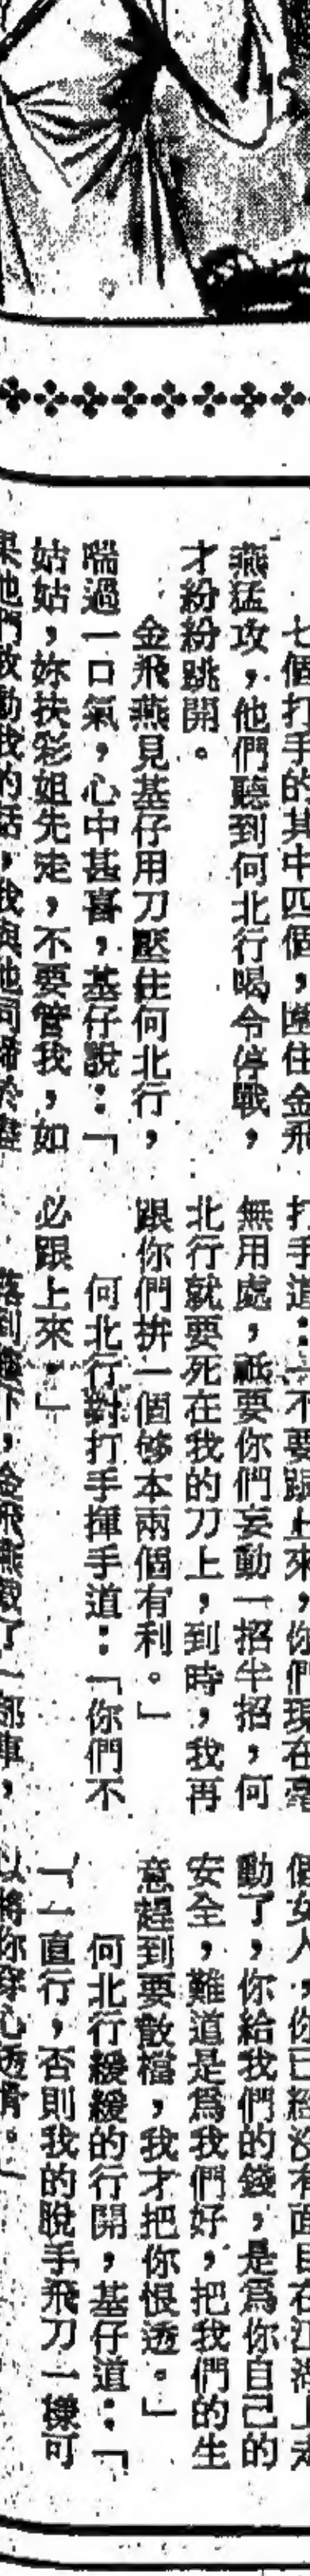 七個打手的其中四個，圍住金飛
燕猛攻，他們聽到何北行喝令停戰，
才紛紛跳開。
金飛燕見基仔用刀壓住何北行，
喘過一口氣，心中甚喜，基仔說：「
姑姑，妳扶彩姐先走，不要管我，如
果他們敢動我的話，我與他同歸於盡
打手道：「不要跟上來，你們現在毫
無用處，祇要你們妄動一招半招，何
北行就要死在我的刀上，到時，我再
跟你們拚一個够本兩個有利。」
何北行對打手揮手道：「你們不
必跟上來。」
落到樓下，金飛燕截了一部車，
個女人，你已經沒有面目在江湖上走
動了，你給我們的錢，是爲你自己的
安全，難道是爲我們好，把我們的生
意趕到要散檔，我才把你恨透。」
何北行緩緩的行開，基仔道：「
「一直行，否則我的脫手飛刀一樣可
以將你穿心透